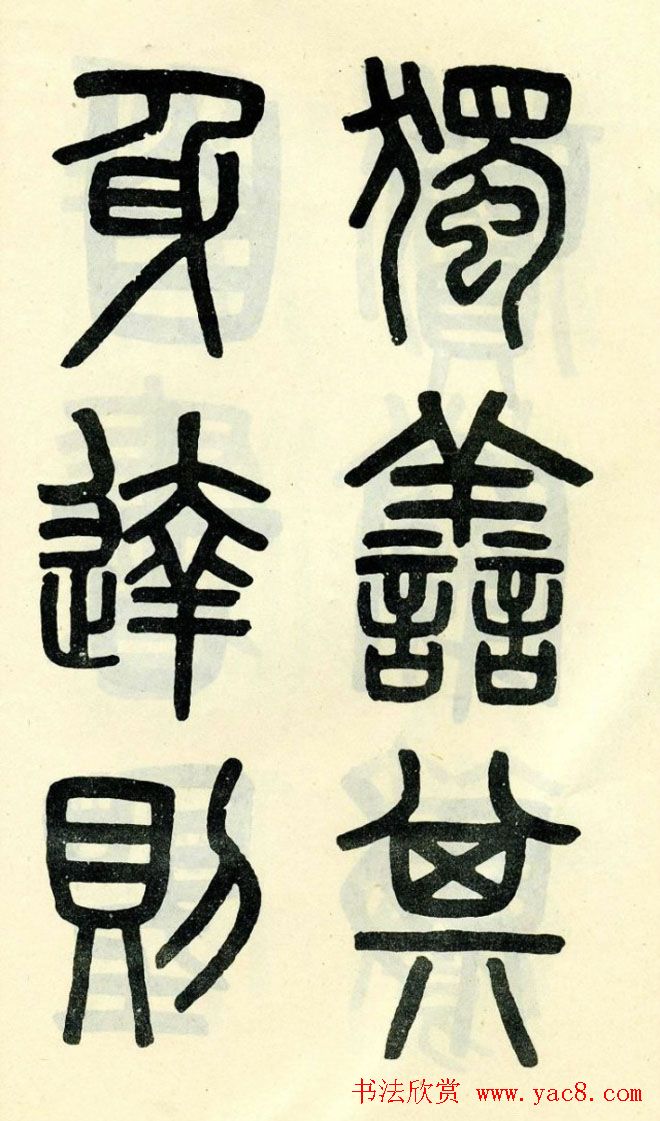 獨善其
身達則
书法欣赏 www.yac8.com